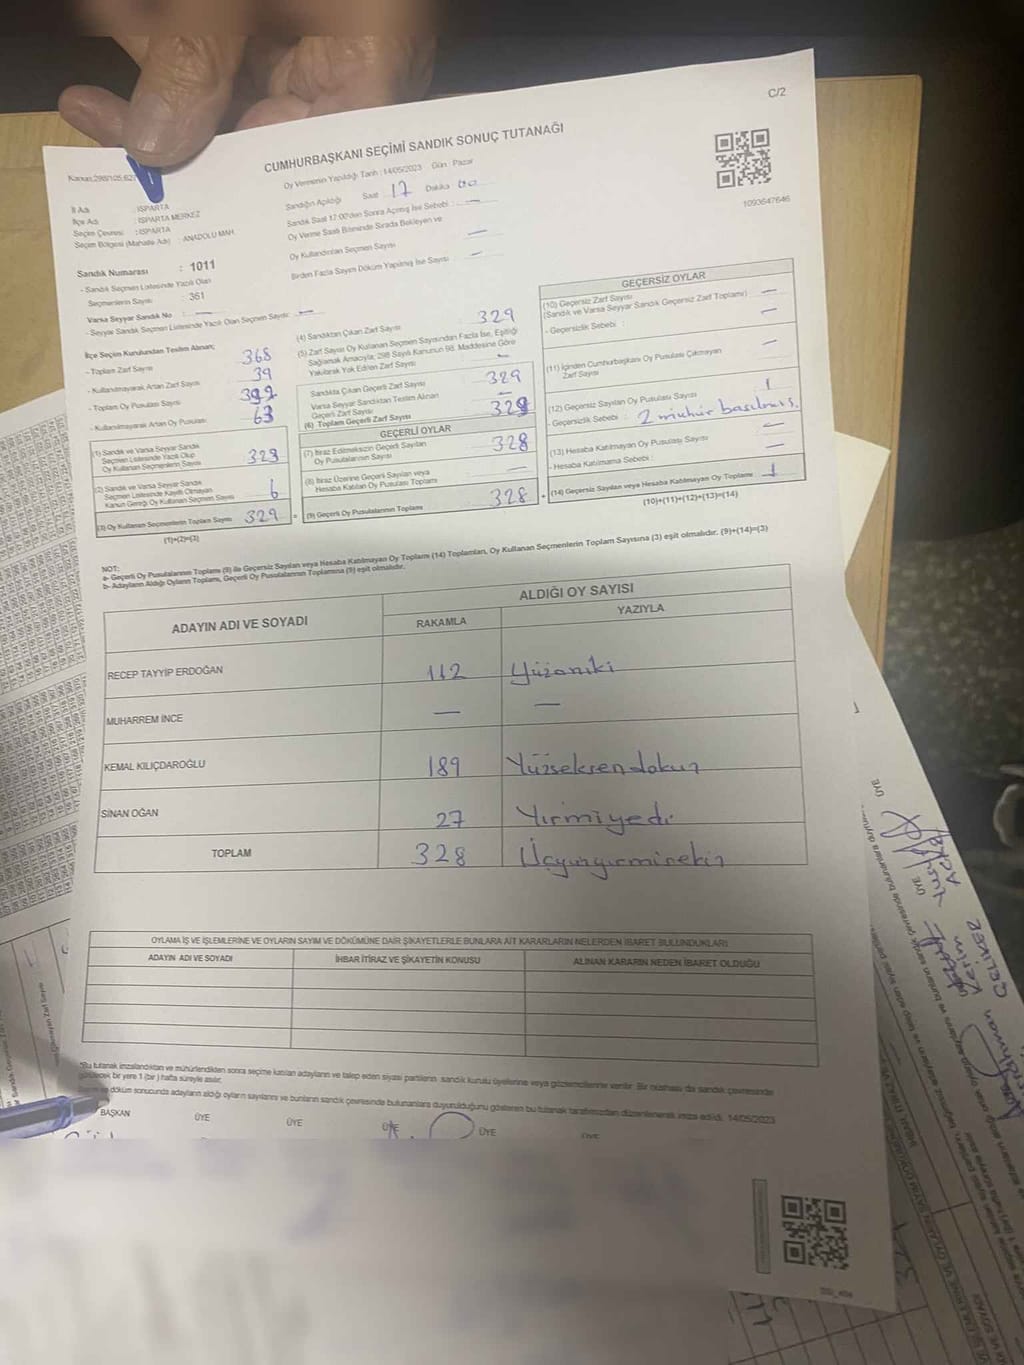 C/2
CUMHURBAŞKANI SEÇİMİ SANDIK SONUÇ TUTANAĞI
Oy Vermenin Yapıldığı Tarih : 14/05/2023 Gün : Pazar
1093647646
İl Adı : ISPARTA
İlçe Adı : ISPARTA MERKEZ
Seçim Çevresi : ISPARTA
Seçim Bölgesi (Mahalle Adı) : ANADOLU MAH.
Sandığın Açıldığı Saat 17 Dakika 00
Sandık Saat 17:00'den Sonra Açılmış İse Sebebi : —
Oy Verme Saati Bitiminde Sırada Bekleyen ve
Oy Kullandırılan Seçmen Sayısı —
Birden Fazla Sayım Döküm Yapılmış İse Sayısı —
Sandık Numarası : 1011
- Sandık Seçmen Listesinde Yazılı Olan
Seçmenlerin Sayısı : 361
Varsa Seyyar Sandık No : —
- Seyyar Sandık Seçmen Listesinde Yazılı Olan Seçmen Sayısı: —
İlçe Seçim Kurulundan Teslim Alınan;
- Toplam Zarf Sayısı 368
- Kullanılmayarak Artan Zarf Sayısı 39
- Toplam Oy Pusulası Sayısı
- Kullanılmayarak Artan Oy Pusulası 63
(1) Sandık ve Varsa Seyyar Sandık
Seçmen Listesinde Yazılı Olup
Oy Kullanan Seçmenlerin Sayısı
(2) Sandık ve Varsa Seyyar Sandık
Seçmen Listesinde Kayıtlı Olmayan
Kanun Gereği Oy Kullanan Seçmen Sayısı 6
(3) Oy Kullanan Seçmenlerin Toplam Sayısı 329
(1)+(2)=(3)
(4) Sandıktan Çıkan Zarf Sayısı 329
(5) Zarf Sayısı Oy Kullanan Seçmen Sayısından Fazla İse, Eşitliği
Sağlamak Amacıyla; 298 Sayılı Kanunun 98. Maddesine Göre
Yakılarak Yok Edilen Zarf Sayısı —
Sandıkta Çıkan Geçerli Zarf Sayısı 329
Varsa Seyyar Sandıktan Teslim Alınan
Geçerli Zarf Sayısı —
(6) Toplam Geçerli Zarf Sayısı 329
GEÇERLİ OYLAR
(7) İtiraz Edilmeksizin Geçerli Sayılan
Oy Pusulalarının Sayısı 328
(8) İtiraz Üzerine Geçerli Sayılan veya
Hesaba Katılan Oy Pusulası Toplamı —
(9) Geçerli Oy Pusulalarının Toplamı 328
GEÇERSİZ OYLAR
(10) Geçersiz Zarf Sayısı —
(Sandık ve Varsa Seyyar Sandık Geçersiz Zarf Toplamı)
- Geçersizlik Sebebi : —
(11) İçinden Cumhurbaşkanı Oy Pusulası Çıkmayan
Zarf Sayısı —
(12) Geçersiz Sayılan Oy Pusulası Sayısı 1
- Geçersizlik Sebebi : 2 mühür basılmış.
(13) Hesaba Katılmayan Oy Pusulası Sayısı —
- Hesaba Katılmama Sebebi : —
(14) Geçersiz Sayılan veya Hesaba Katılmayan Oy Toplamı 1
(10)+(11)+(12)+(13)=(14)
NOT:
a- Geçerli Oy Pusulalarının Toplamı (9) ile Geçersiz Sayılan veya Hesaba Katılmayan Oy Toplamı (14) Toplamları, Oy Kullanan Seçmenlerin Toplam Sayısına (3) eşit olmalıdır. (9)+(14)=(3)
b- Adayların Aldığı Oyların Toplamı, Geçerli Oy Pusulalarının Toplamına (9) eşit olmalıdır.
ADAYIN ADI VE SOYADI ALDIĞI OY SAYISI
RAKAMLA YAZIYLA
RECEP TAYYİP ERDOĞAN 112 Yüzoniki
MUHARREM İNCE — —
KEMAL KILIÇDAROĞLU 189 Yüzseksendokuz
SİNAN OĞAN 27 Yirmiyedi
TOPLAM 328 Üçyüzyirmisekiz
OYLAMA İŞ VE İŞLEMLERİNE VE OYLARIN SAYIM VE DÖKÜMÜNE DAİR ŞİKAYETLERLE BUNLARA AİT KARARLARIN NELERDEN İBARET BULUNDUKLARI
ADAYIN ADI VE SOYADI İHBAR İTİRAZ VE ŞİKAYETİN KONUSU ALINAN KARARIN NEDEN İBARET OLDUĞU
*Bu tutanak imzalandıktan ve mühürlendikten sonra seçime katılan adayların ve talep eden siyasi partilerin sandık kurulu üyelerine veya gözlemcilerine verilir. Bir nüshası da sandık çevresinde
görülecek bir yere 1 (bir) hafta süreyle asılır.
döküm sonucunda adayların aldığı oyların sayılarını ve bunların sandık çevresinde bulunanlara duyurulduğunu gösteren bu tutanak tarafımızdan düzenlenerek imza edildi. 14/05/2023
BAŞKAN ÜYE ÜYE ÜYE ÜYE
ÜYE
ÜYE